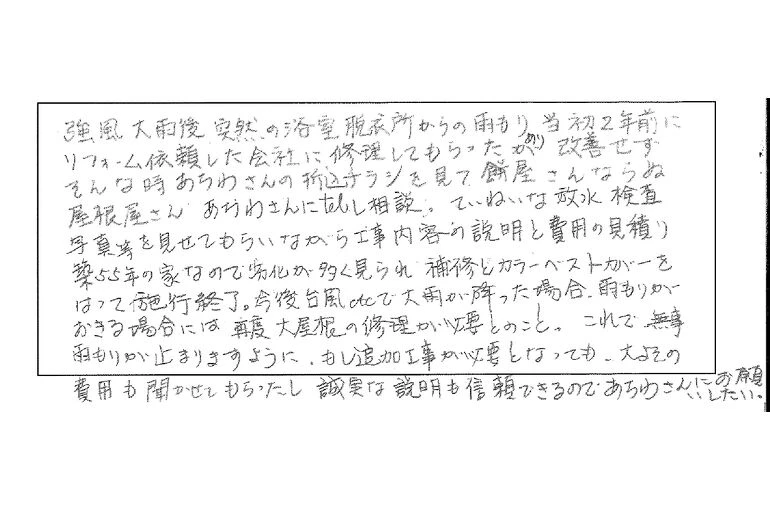 強風大雨後 突然の浴室脱衣所からの雨もり 当初2年前に
リフォーム依頼した会社に修理してもらったが 改善せず
そんな時あちわさんの折込チラシを見て 餅屋さんならぬ
屋根屋さん あちわさんにtelし相談。ていねいな放水検査
写真等を見せてもらいながら工事内容の説明と費用の見積り
築55年の家なので劣化が多く見られ 補修とカラーベストカバーを
はって施行終了。今後台風etcで大雨が降った場合、雨もりが
おきる場合には 再度 大屋根の修理が必要とのこと。これで無事
雨もりが止まりますように、もし追加工事が必要となっても、大よその
費用も聞かせてもらったし 誠実な説明も信頼できるのであちわさんにお願
いしたい。